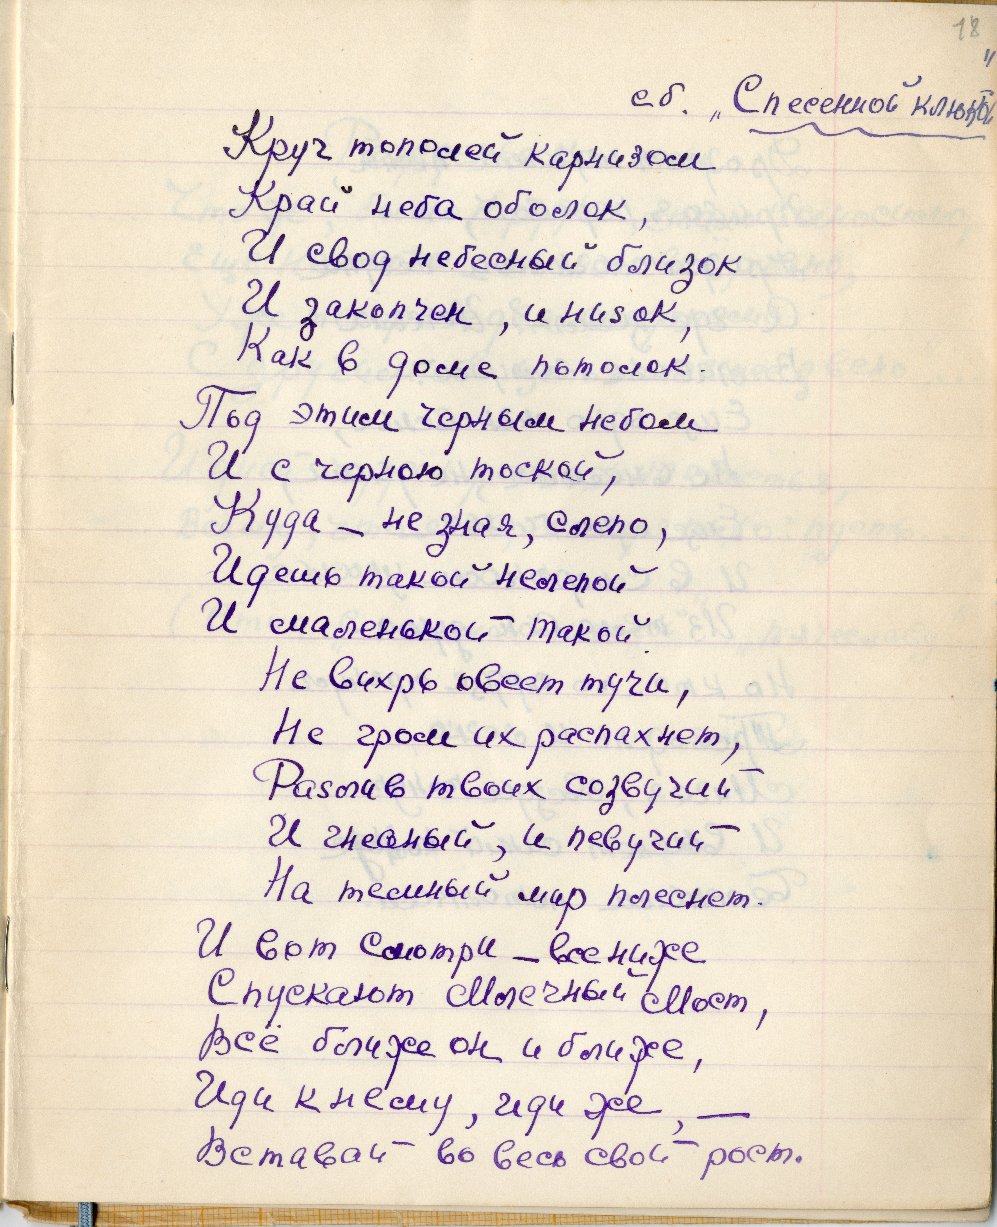 18
сб. „Спесенной клюкой"
Круч тополей карнизом
Край неба оболок,
И свод небесный близок
И закопчен, и низок,
Как в доме потолок.
Под этим черным небом
И с черною тоской,
Куда – не зная, слепо,
Идешь такой нелепой
И маленькой такой.
Не вихрь овеет тучи,
Не гром их распахнет,
Разлив твоих созвучий
И гневный, и певучий
На темный мир плеснет.
И вот смотри – все ниже
Спускают Млечный Мост,
Всё ближе он и ближе,
Иди к нему, иди же, —
Вставай во весь свой рост.